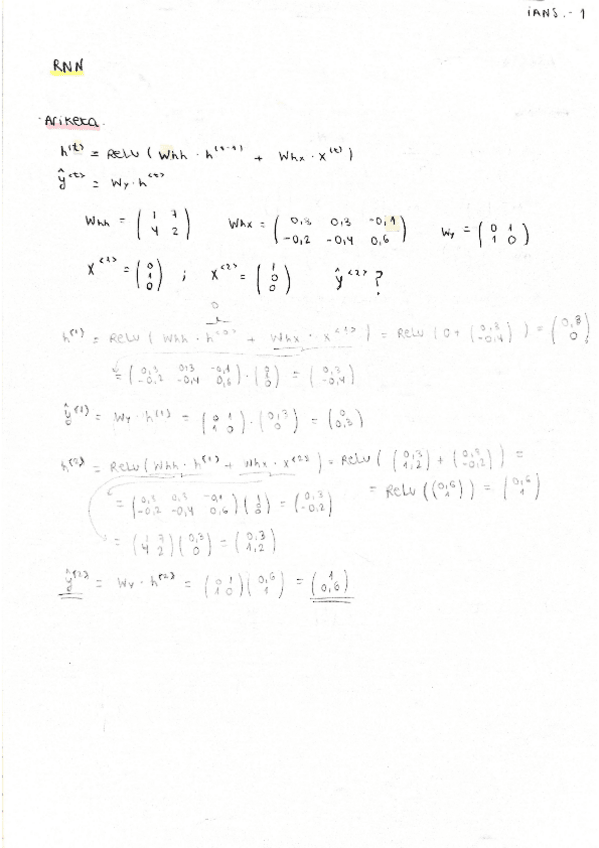 iANS. - 1
RNN
· Ariketa.
h^(t) = ReLU ( Whh · h^(t-1) + Whx · x^(t) )
ŷ^(t) = Wy · h^(t)
Whh = ( 1 7 ; 4 2 ) Whx = ( 0,3 0,3 -0,1 ; -0,2 -0,4 0,6 ) Wy = ( 0 1 ; 1 0 )
x^(1) = ( 0 ; 1 ; 0 ) ; x^(2) = ( 1 ; 0 ; 0 ) ŷ^(2) ?
0
h^(1) = ReLU ( Whh · h^(0) + Whx · x^(1) ) = ReLU ( 0 + ( 0,3 ; -0,4 ) ) = ( 0,3 ; 0 )
= ( 0,3 0,3 -0,1 ; -0,2 -0,4 0,6 ) · ( 0 ; 1 ; 0 ) = ( 0,3 ; -0,4 )
ŷ^(1) = Wy · h^(1) = ( 0 1 ; 1 0 ) · ( 0,3 ; 0 ) = ( 0 ; 0,3 )
h^(2) = ReLU ( Whh · h^(1) + Whx · x^(2) ) = ReLU ( ( 0,3 ; 1,2 ) + ( 0,3 ; -0,2 ) ) =
= ReLU ( ( 0,6 ; 1 ) ) = ( 0,6 ; 1 )
= ( 0,3 0,3 -0,1 ; -0,2 -0,4 0,6 ) ( 1 ; 0 ; 0 ) = ( 0,3 ; -0,2 )
= ( 1 7 ; 4 2 ) ( 0,3 ; 0 ) = ( 0,3 ; 1,2 )
ŷ^(2) = Wy · h^(2) = ( 0 1 ; 1 0 ) ( 0,6 ; 1 ) = ( 1 ; 0,6 )